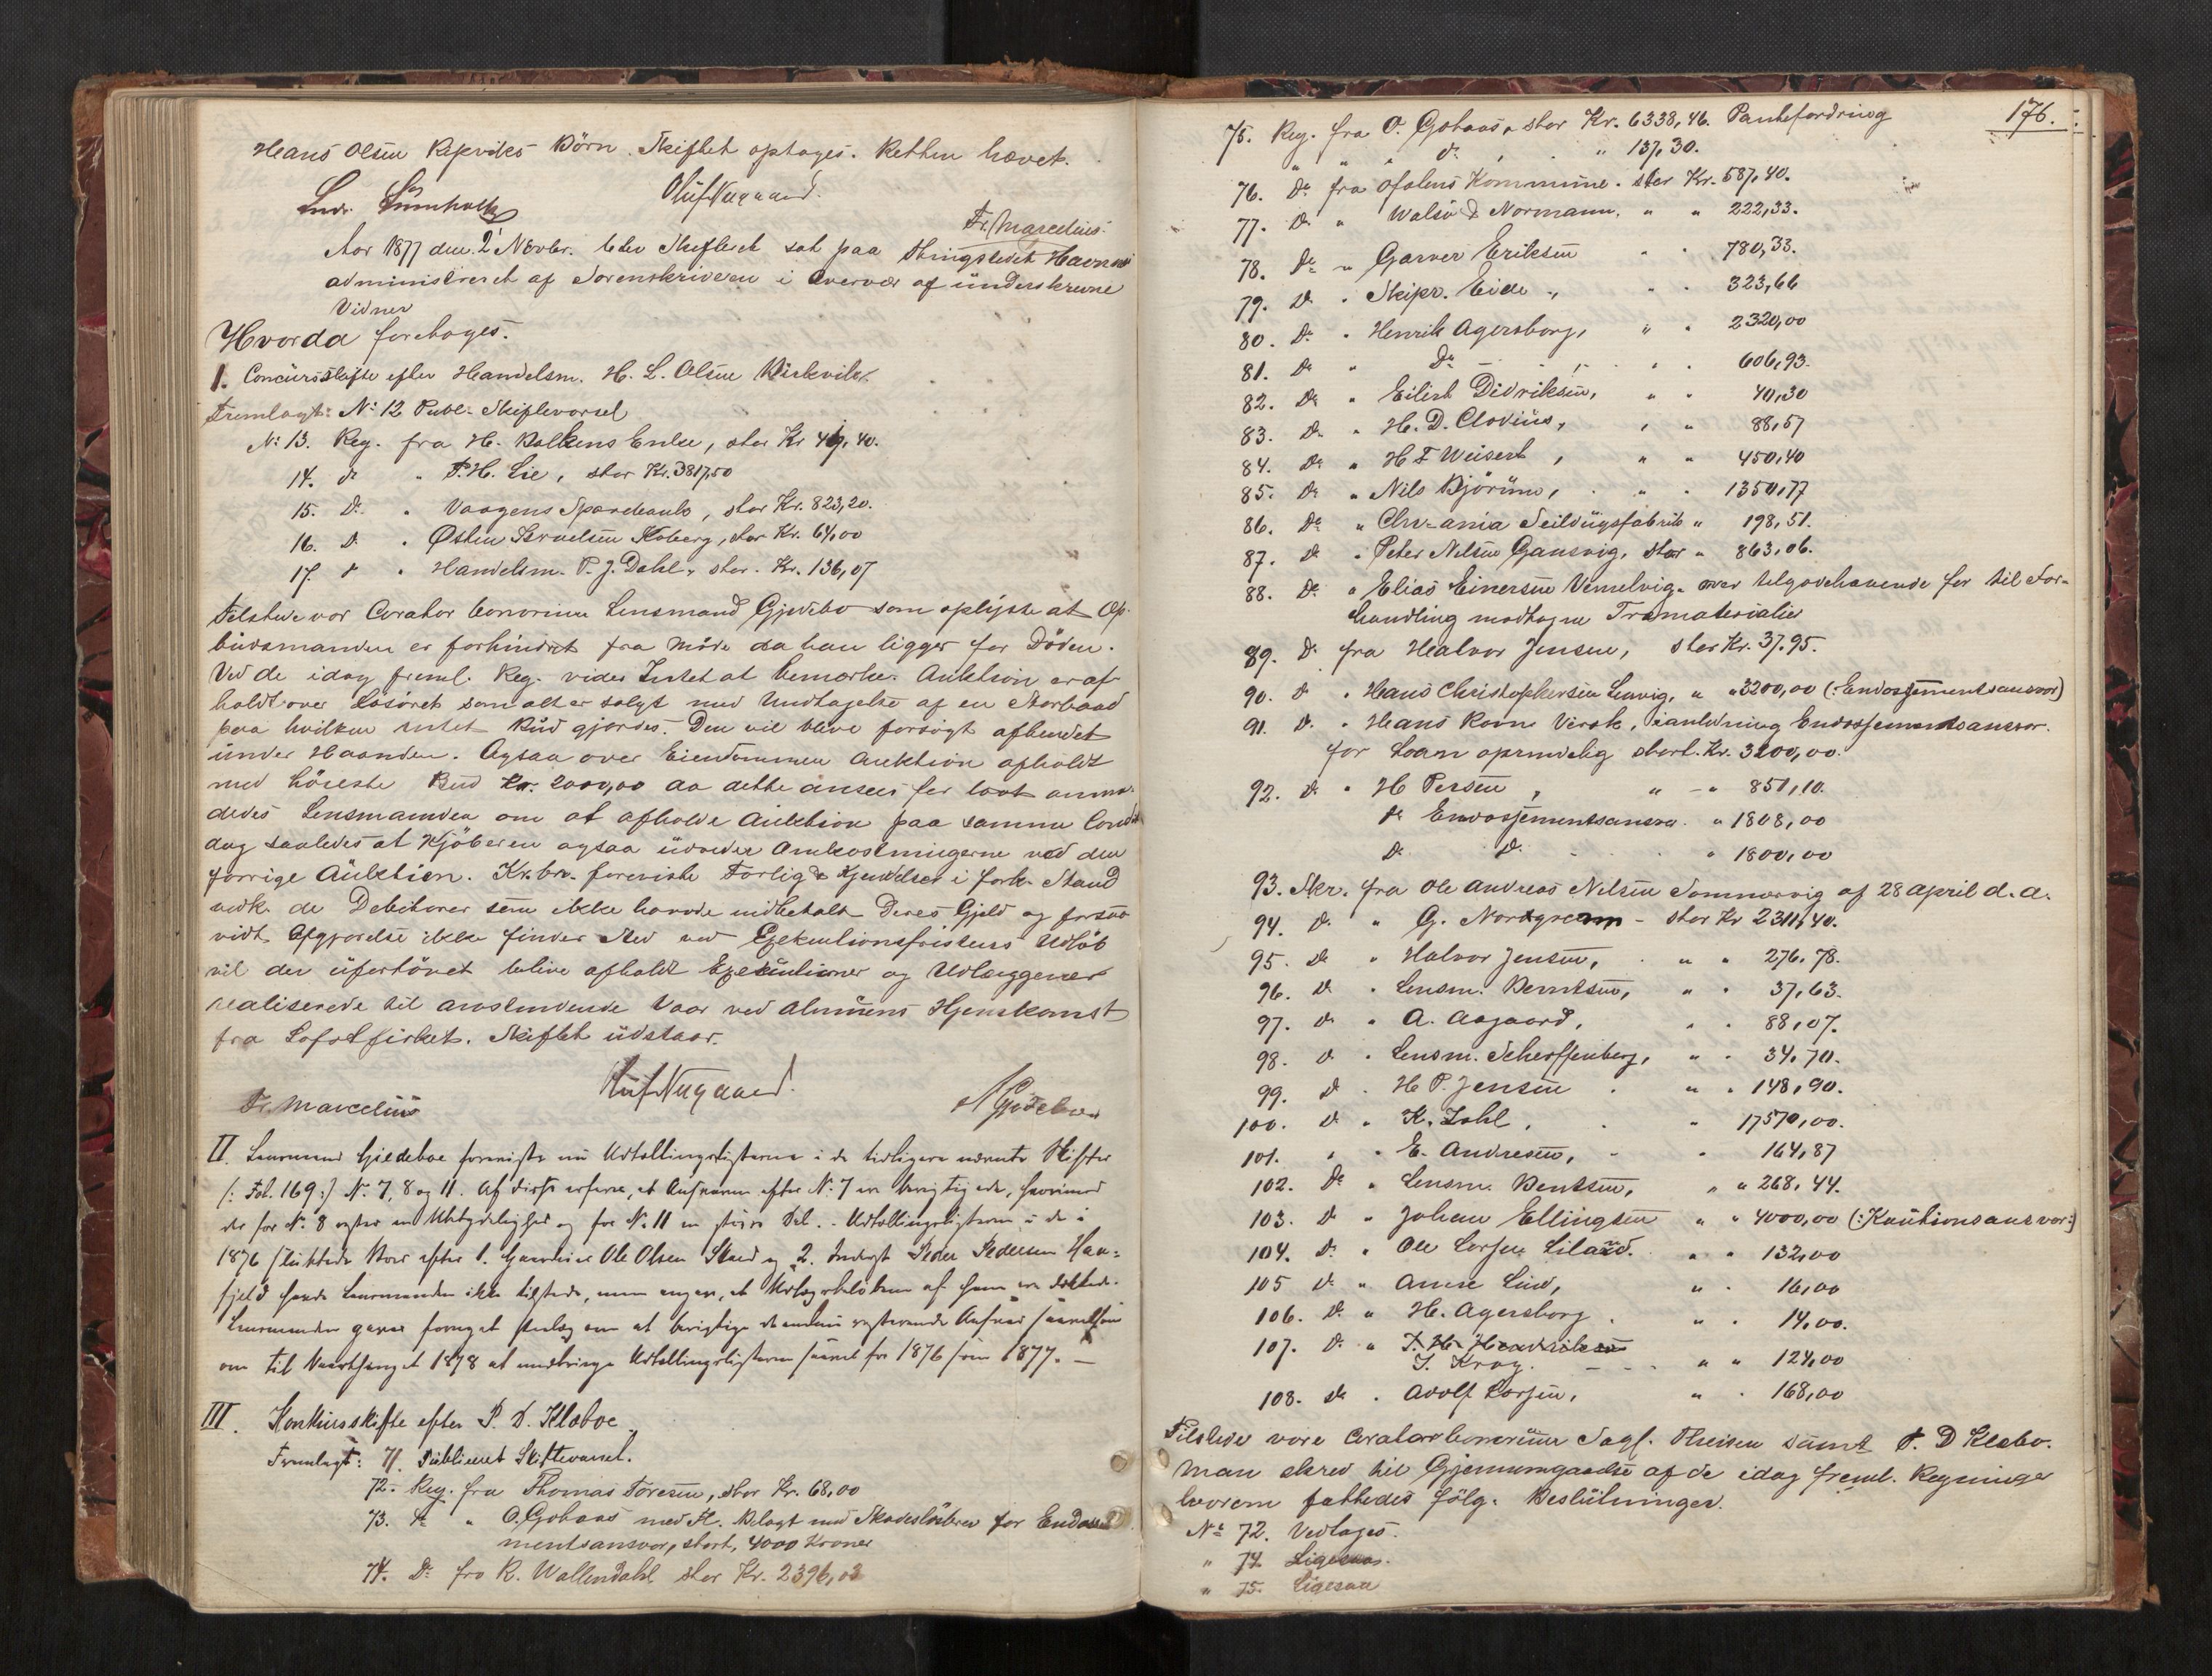 Hans Olsen Repviks Börn. Skiftet optages. Retten hævet.
Oluf Nygaard.
Fr. Marcelius
Aar 1877 den 2 Novbr. blev Skifteret sat paa Thingstedet Havnnes
administreret af Sorenskriveren i Overvær af underskrevne
Vidner
Hvorda foretoges.
1. Concursskifte efter Handelsm. H. L. Olsen Birkvik.
Fremlagt: No 12 Publ. Skiftevarsel
No 13. Reg. fra H. Balkens Enke, stor Kr 49,40.
14. do " P. H. Lie, stor Kr. 3817,50
15. Do. " Vaagens Sparebank, stor Kr. 823,20.
16. D. " Østen Isruelsen Kaberg, stor Kr. 64,00
17. d " Handelsm. P. J. Dahl, stor. Kr. 136,07
Tilstede var Curator bonorum Lensmand Gjedebo som oplyste at Op-
budsmanden er forhindret fra Møde da han ligger for Döden.
Ved de idag freml. Reg. vides Intet at bemærke. Auktion er af-
holdt over Løsöret som alt er solgt med Undtagelse af en Storbaad
paa hvilken intet Bud gjordes. Den vil blive forsögt afhendet
under Haanden. Ogsaa over Eiendommen Auktion afholdt
med höieste Bud Kr. 2000,00 da dette ansees for lavt anmo-
dedes Lensmanden om at afholde Auktion paa samme
dog saaledes at Kjöberen ogsaa udreder Omkostningerne ved den
forrige Auktion. Kr. br. foreviste Forlig & Kjendelser i fork. Stand
vedk. de Debitorer som ikke havde indbetalt Deres Gjeld og forsaa-
vidt Afgjørelse ikke finder Sted ved Exekutionsfristens Udlöb
vil der ufortövet blive afholdt Exekutioner og Udlæggene
realiserede til anstundende Vaar ved Almuens Hjemkomst
fra Lofotfisket. Skiftet udstaar.
Oluf Nygaard.
Fr. Marcelius
N Gjedeboe
II. Lensmand Gjedeboe foreviste nu Udtællingslisterne i de tidligere nævnte Skifter
(: Fol. 169:) No. 7, 8 og 11. Af disse erfares, at Anførseren efter No. 7 er berigtigede, hvorimod
der for No. 8 rester en Ubetydelighed og for No. 11 en större Del. - Udtællingslisterne i de i
1876 sluttede Boer efter 1. Gaardeier Ole Olsen Skard og 2. Inderst Peder Pedersen Haa-
fjeld havde Lensmanden ikke tilstede, men angav, at Udlægsbeløbene af ham ere dækkede.
Lensmanden gaves fornyet Paalæg om at berigtige
om til Vaarthinget 1878 at medbringe Udtællingslisterne saavel for 1876 som 1877. —
III. Konkursskifte efter P. D. Klæboe.
Fremlagt: 71. Publiceret Skiftevarsel.
72. Reg. fra Thomas Toresen, stor Kr. 68,00
73. Do " O. Gotaas med Fl. Bilagt med Skadeslösbrev for Endosse-
mentsansvar, stort, 4000 Kroner
74. Do fra R. Wallendahl stor Kr. 2396,03
176.
75. Reg. fra O. Gotaas, stor Kr. 6338,46. Pantefordring
" " " do , . " 137,30.
76. Do fra Ofotens Kommune. stor Kr. 587,40.
77. Do " Walsö & Normann, " " 222,33.
78. Do " Garver Eriksen " " 780,33.
79. D. " Skipr. Eide ., " " 323,66
80. Do " Henrik Agersborg, " " 2320,00
81. Do " Do - ,. " . 606,93.
82. Do " Eilert Didriksen, " " 40,30
83. Do " H. D. Clovius, , " 88,57
84. Do " H F Weisert , " " 450,40
85. Do " Nils Björum, . " . 1350,77
86. Do " Chr-ania Seildugsfabrik " 198,51.
87. Do " Peter Nilsen Gansvig, stor " 863,06.
88. Do " Elias Einersen Vemelvig. over tilgodehavende for til For-
handling modtagne Træmaterialier
89. D. fra Healvor Jensen, stor Kr. 37,95.
90. d " Hans Christophersen Lenvig, " " 3200,00 (: Endossementsansvar)
91. D. " Hans Romn Virak, ianledning Endossementsansvar.
for Laan oprindelig stort. Kr. 3200,00.
92. D. " H Persen , " - " 851,10.
do Endossementsansv. " 1808,00
Do Do - . " 1800,00
93. Skr. fra Ole Andreas Nilsen Sommervig af 28 April d. a.
94. D. " G. Nordgreen - stor Kr 2311,40.
95. Do " Halvor Jensen, . " " 276,78.
96. D. " Lensm. Berntsen, " " 37,63.
97. D. " A. Aagaard, " " 88,07.
98. D. " Lensm. Scherffenberg, " " 34,70.
99. D. " H P. Jensen . " " 148,90.
100. D. " K. Zahl, . " 17570,00.
101. " " E. Andresen, - " 164,87
102. Do " Lensm. Bentsen, " " 268,44.
103. D " Johan Ellingsen " " 4000,00 (: Kautionsansvar:)
104. D. " Ole Larsen Liland. " " 132,00
105 D. " Anne Lind, " . 16,00
106. D. " H. Agersborg . " . 14,00.
107. D. " J. H. Hendriksen
J. Krog. - - . " " 124,00
108. Do " Adolf Larsen, " . 168,00
Tilstede vare Curator bonorum Sagf. Theisen samt P. D Klæbo.
Man skred til Gjennemgaaelse af de idag freml. Regninger
hvorom fattedes fölg. Beslutninger.
No 72. Vedtages.
" 74. Ligesaa.
" 75. Ligesaa